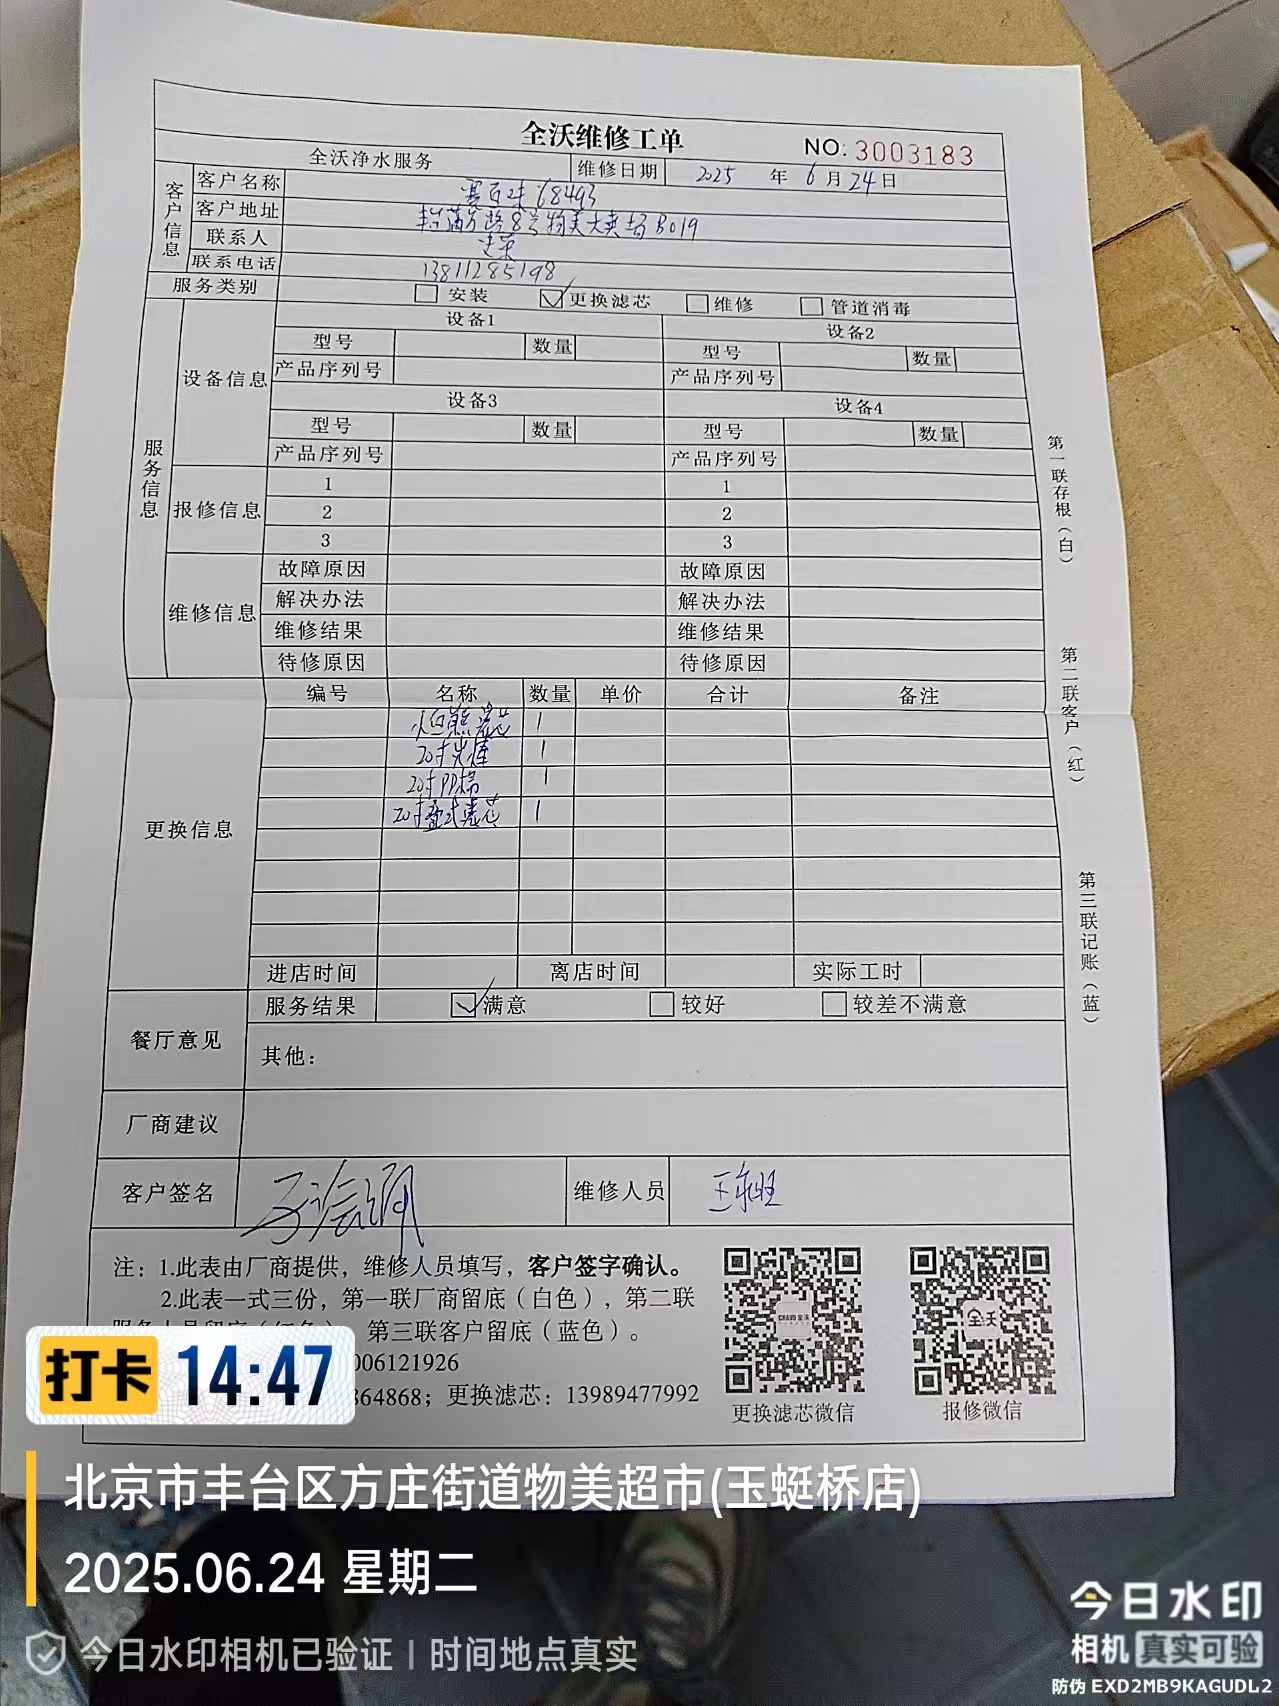 全沃维修工单
NO: 3003183
全沃净水服务 维修日期 2025 年 6 月 24 日
客户信息
客户名称 赛百味 68493
客户地址 蒲方路8号物美大卖场B019
联系人
联系电话 13811285198
服务类别 安装 更换滤芯 维修 管道消毒
服务信息
设备信息
设备1 设备2
型号 数量 型号 数量
产品序列号 产品序列号
设备3 设备4
型号 数量 型号 数量
产品序列号 产品序列号
报修信息
1 1
2 2
3 3
维修信息
故障原因 故障原因
解决办法 解决办法
维修结果 维修结果
待修原因 待修原因
更换信息
编号 名称 数量 单价 合计 备注
滤芯 1
20寸炭棒 1
20寸PP棉 1
20寸叠式滤芯 1
进店时间 离店时间 实际工时
餐厅意见
服务结果 满意 较好 较差不满意
其他：
厂商建议
客户签名 维修人员 王
第一联存根（白）
第二联客户（红）
第三联记账（蓝）
注：1.此表由厂商提供，维修人员填写，客户签字确认。
2.此表一式三份，第一联厂商留底（白色），第二联
第三联客户留底（蓝色）。
006121926
864868；更换滤芯：13989477992
CHAVO 全沃
全沃
更换滤芯微信
报修微信
打卡 14:47
北京市丰台区方庄街道物美超市(玉蜓桥店)
2025.06.24 星期二
今日水印相机已验证 | 时间地点真实
今日水印
相机 真实可验
防伪 EXD2MB9KAGUDL2